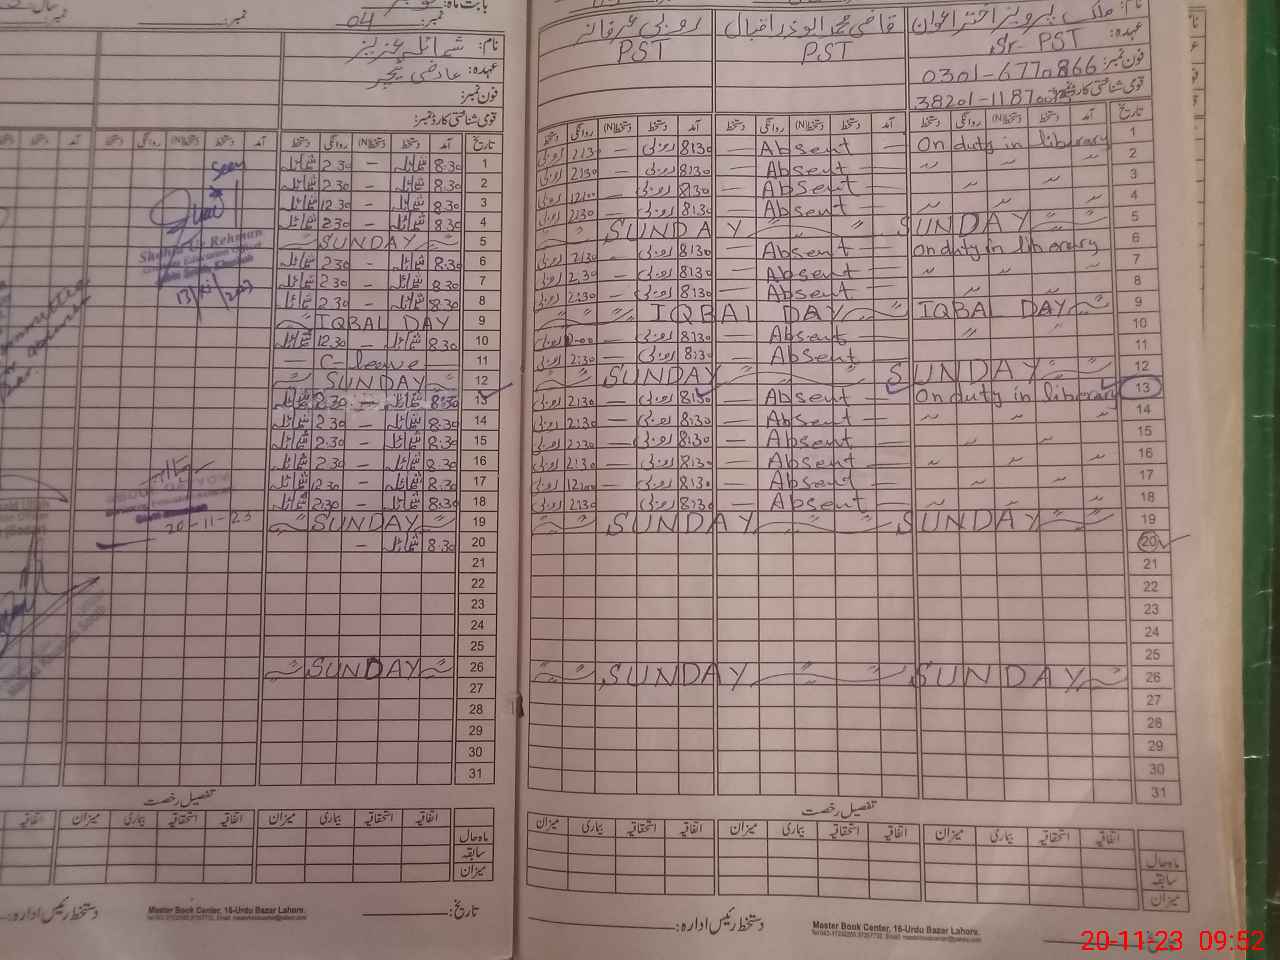 بابت ماہ:
نمبر: 04
نمبر:
نام: شمائلہ عزیز
عہدہ: عارضی ٹیچر
فون نمبر:
قومی شناختی کارڈ نمبر:
تاریخ آمد دستخط دستخط(N) روانگی دستخط
1 8:30 شمائلہ – 2:30 شمائلہ
2 8:30 شمائلہ – 2:30 شمائلہ
3 8:30 شمائلہ – 12:30 شمائلہ
4 8:30 شمائلہ – 2:30 شمائلہ
5 SUNDAY
6 8:30 شمائلہ – 2:30 شمائلہ
7 8:30 شمائلہ – 2:30 شمائلہ
8 8:30 شمائلہ – 2:30 شمائلہ
9 IQBAL DAY
10 8:30 شمائلہ – 12:30 شمائلہ
11 — C-leave —
12 SUNDAY
13 8:30 شمائلہ – 2:30 شمائلہ
14 8:30 شمائلہ – 2:30 شمائلہ
15 8:30 شمائلہ – 2:30 شمائلہ
16 8:30 شمائلہ – 2:30 شمائلہ
17 8:30 شمائلہ – 12:30 شمائلہ
18 8:30 شمائلہ – 2:30 شمائلہ
19 SUNDAY
20 8:30 شمائلہ –
21
22
23
24
25
26 SUNDAY
27
28
29
30
31
Seen
Shafiq Ur Rehman
13/xi/2023
20-11-23
تفصیل رخصت
اتفاقیہ استحقاقیہ بیماری میزان اتفاقیہ استحقاقیہ بیماری میزان اتفاقیہ
ماہ حال
سابقہ
میزان
تاریخ:
دستخط رئیس ادارہ:
Master Book Center, 16-Urdu Bazar Lahore.
نام: ملک پرویز اختر اعوان
قاضی محمد ابوذر اقبال
روبی عرفانہ
عہدہ: Sr. PST
PST
PST
فون نمبر: 0301-6770866
قومی شناختی کارڈ نمبر:
تاریخ آمد دستخط دستخط(N) روانگی دستخط آمد دستخط دستخط(N) روانگی دستخط آمد دستخط دستخط(N) روانگی دستخط
1 On duty in library — Absent — 8:30 روبی — 2:30 روبی
2 〃 〃 〃 — Absent — 8:30 روبی — 2:30 روبی
3 〃 〃 — Absent — 8:30 روبی — 12:00 روبی
4 〃 〃 〃 — Absent — 8:30 روبی — 2:30 روبی
5 SUNDAY SUNDAY
6 On duty in library — Absent — 8:30 روبی — 2:30 روبی
7 〃 〃 〃 — Absent — 8:30 روبی — 2:30 روبی
8 〃 〃 — Absent — 8:30 روبی — 2:30 روبی
9 IQBAL DAY IQBAL DAY
10 〃 〃 Absent 8:30 روبی روبی
11 Absent — 8:30 روبی — 2:30 روبی
12 SUNDAY SUNDAY
13 On duty in library — Absent — 8:30 روبی — 2:30 روبی
14 〃 〃 〃 — Absent — 8:30 روبی — 2:30 روبی
15 〃 〃 — Absent — 8:30 روبی — 2:30 روبی
16 〃 〃 〃 — Absent — 8:30 روبی — 2:30 روبی
17 〃 〃 — Absent — 8:30 روبی — 12:00 روبی
18 〃 〃 〃 — Absent — 8:30 روبی — 2:30 روبی
19 SUNDAY SUNDAY
20
21
22
23
24
25
26 SUNDAY SUNDAY
27
28
29
30
31
تفصیل رخصت
اتفاقیہ استحقاقیہ بیماری میزان اتفاقیہ استحقاقیہ بیماری میزان اتفاقیہ استحقاقیہ بیماری میزان
ماہ حال
سابقہ
میزان
دستخط رئیس ادارہ:
Master Book Center, 16-Urdu Bazar Lahore.
20-11-23 09:52